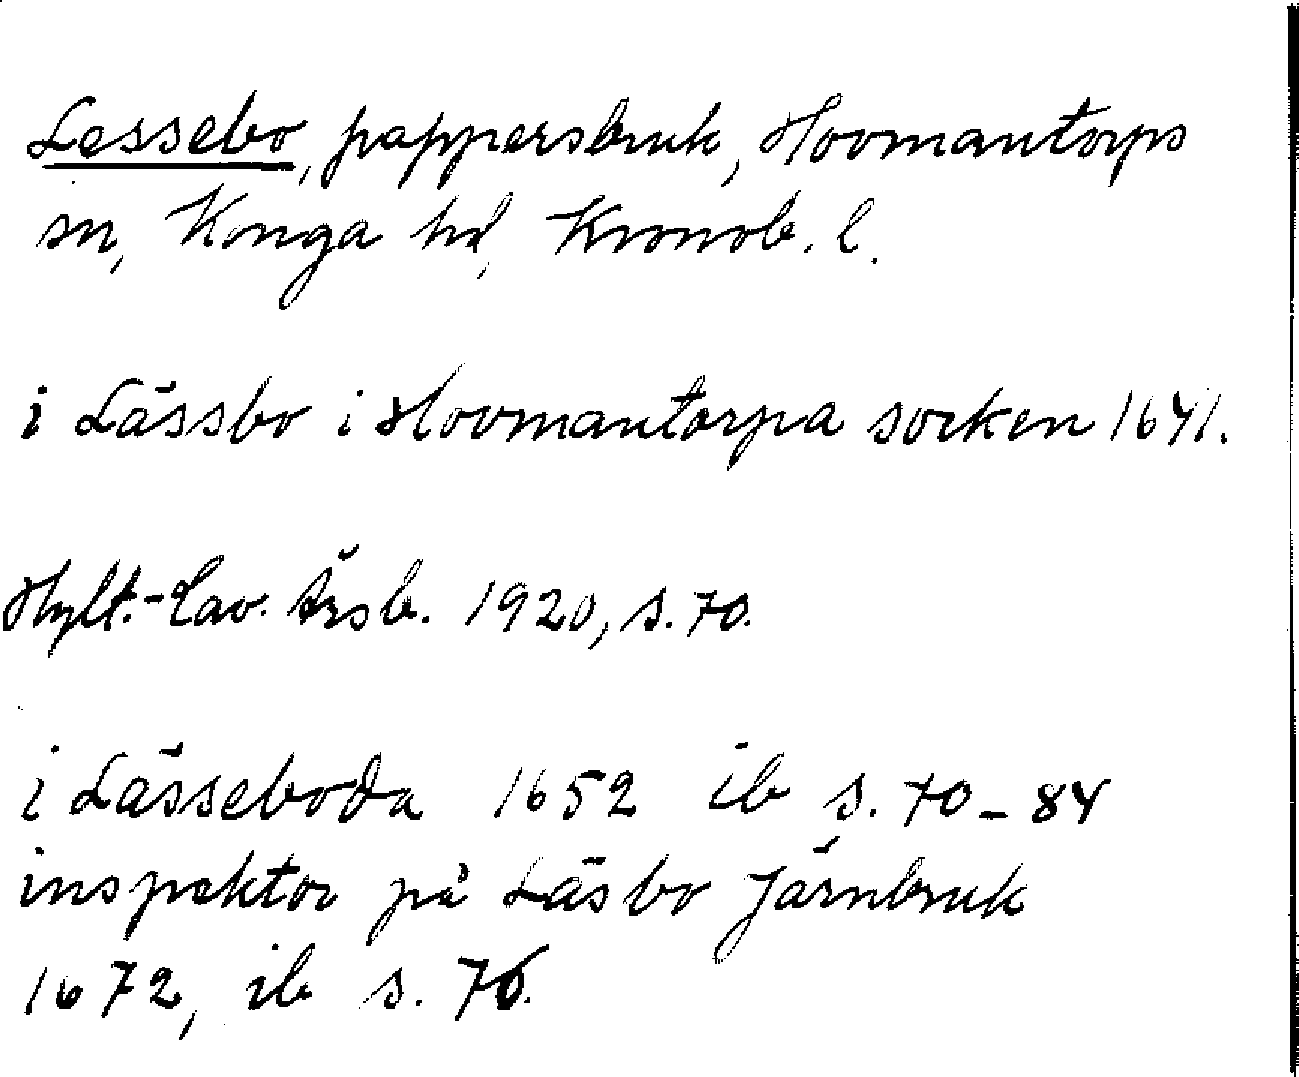 Lessebo, pappersbruk, Hovmantorps
sn, Konga hd, Kronob. l.
i Lässbo i Hovmantorpa socken 1641.
Hylt.-Cav. Årsb. 1920, s. 70.
i Lässeboda 1652 ib s. 70-84
inspektor på Läsbo Järnbruk
1672, ib s. 70.